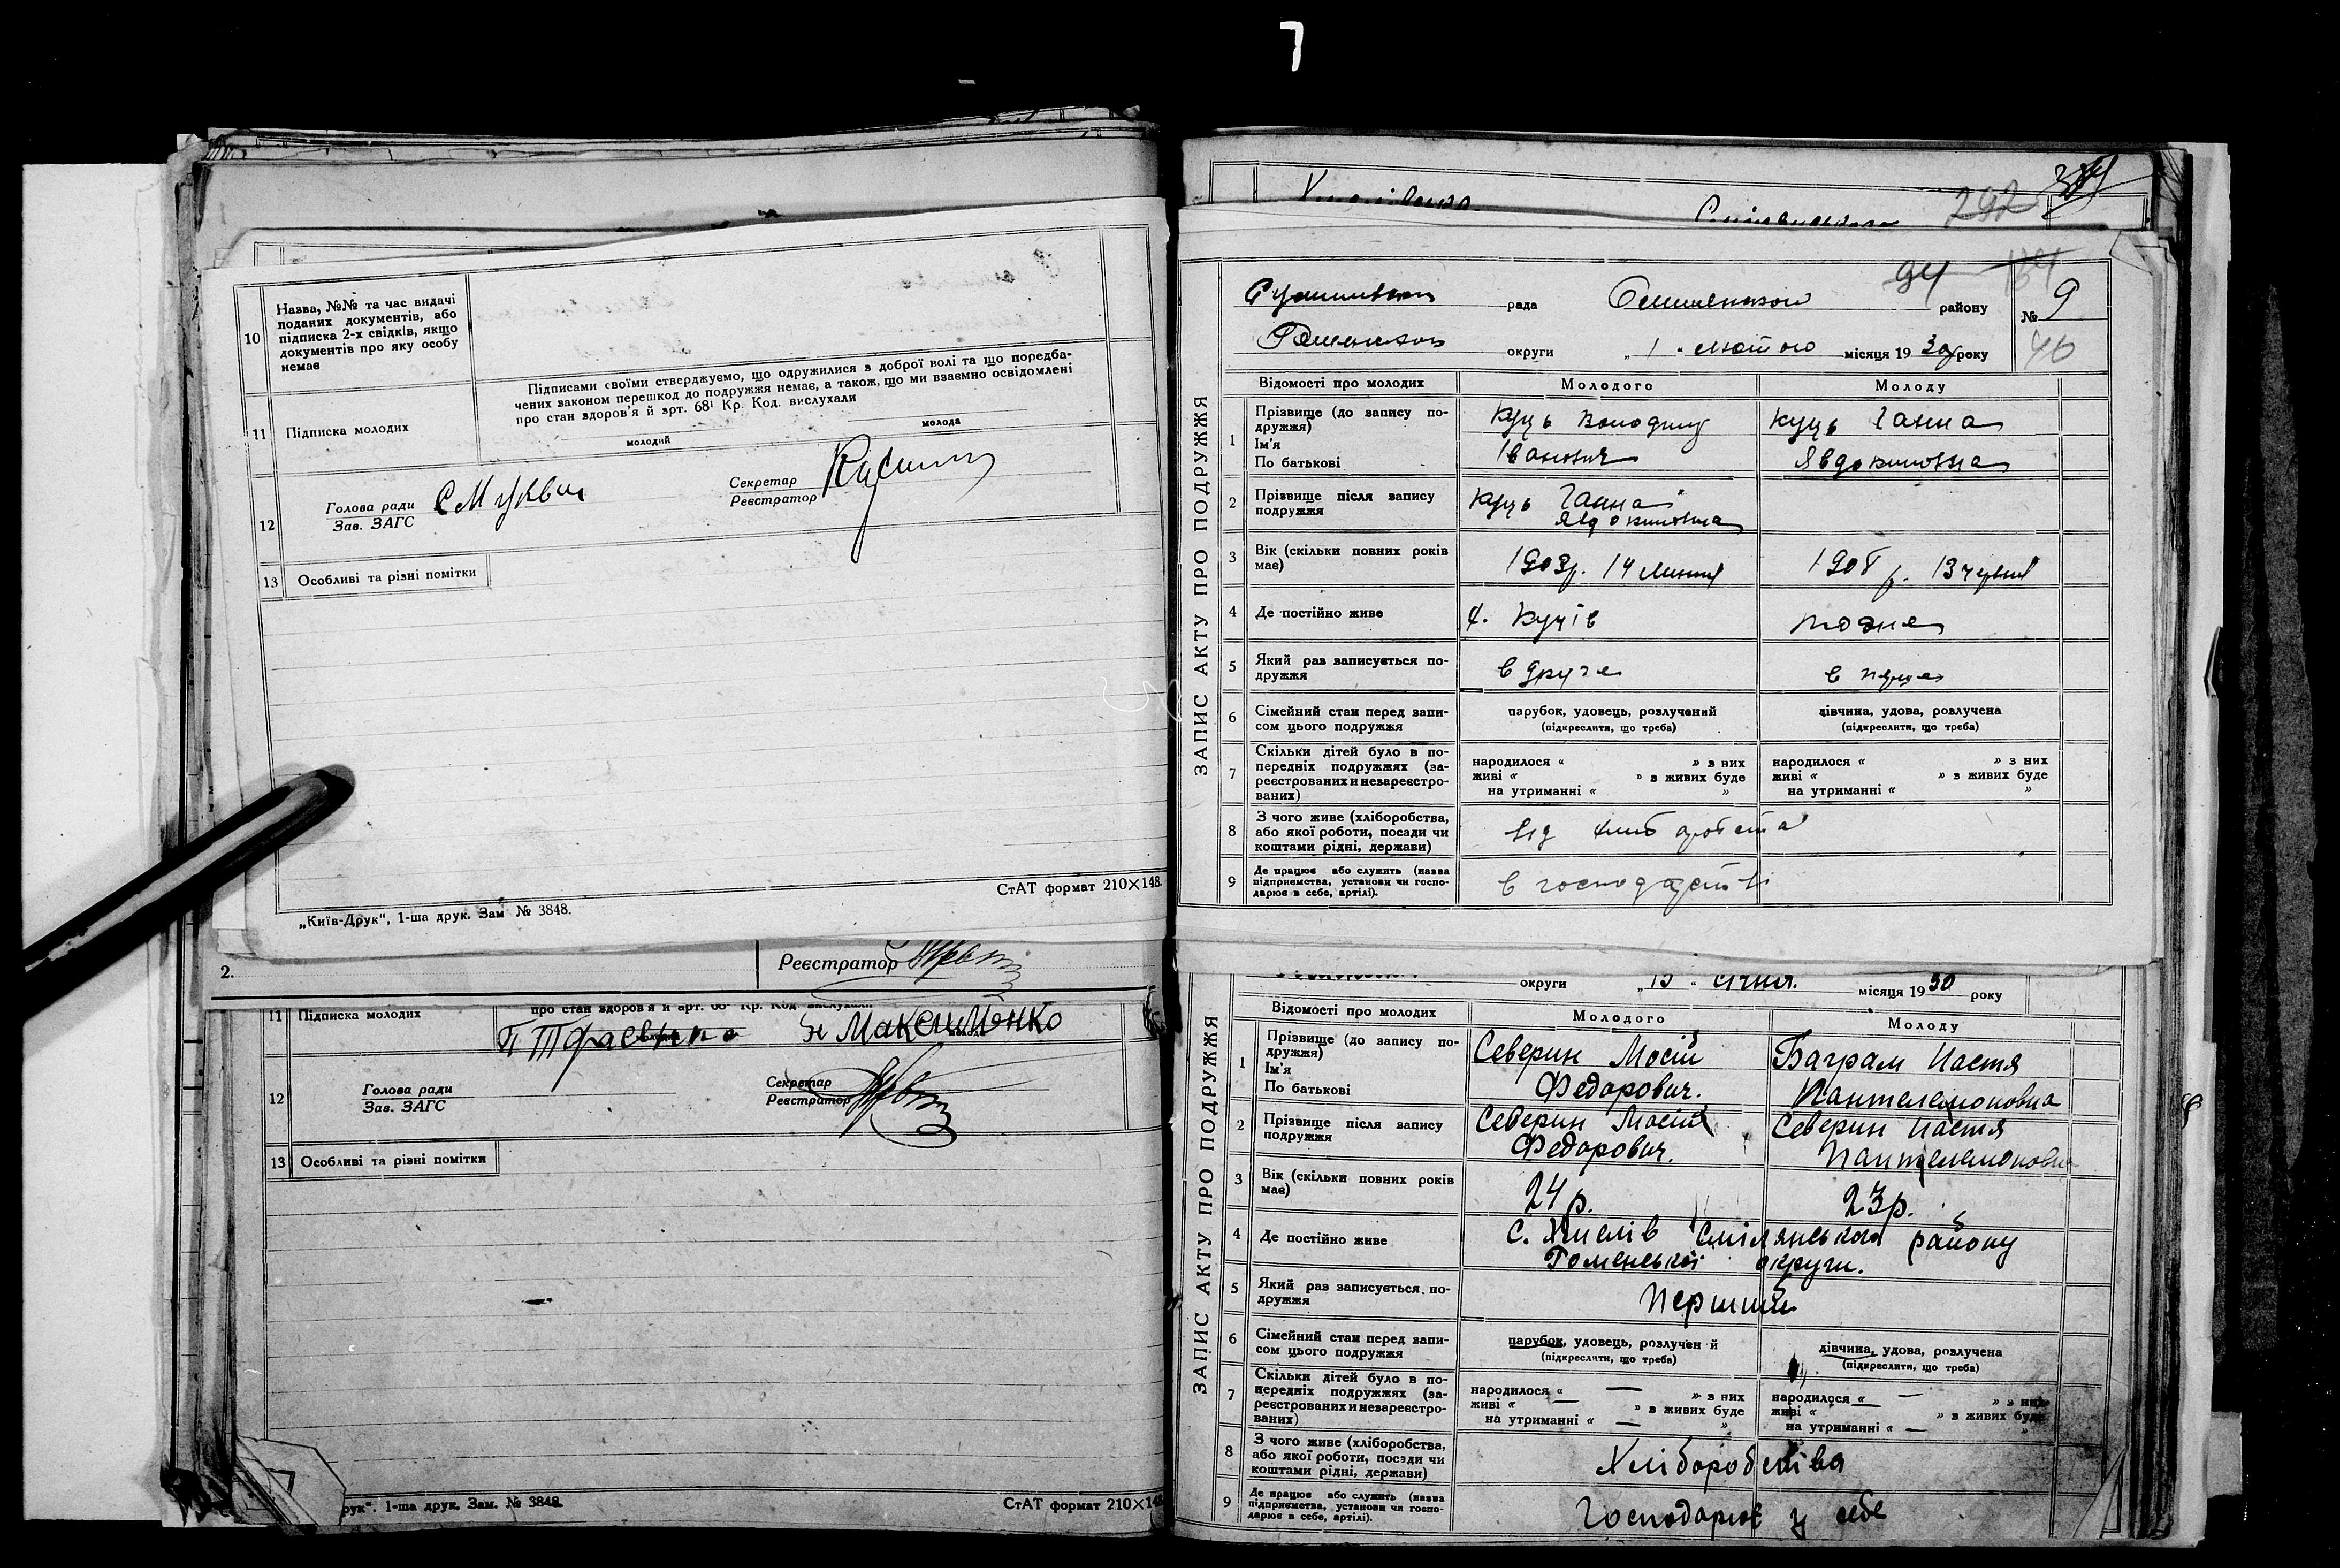 7
292
10 Назва, №№ та час видачі
поданих документів, або
підписка 2-х свідків, якщо
документів про яку особу
немає
Підписами своїми стверджуємо, що одружилися з доброї волі та що передба-
чених законом перешкод до подружжя немає, а також, що ми взаємно освідомлені
про стан здоров'я й арт. 68¹ Кр. Код. вислухали
11 Підписка молодих
молодий молода
12 Голова ради
Зав. ЗАГС
Секретар
Реєстратор
13 Особливі та різні помітки
СтАТ формат 210×148.
„Київ-Друк“, 1-ша друк. Зам № 3848.
2. Реєстратор
про стан здоров'я й арт. 68¹ Кр. Код вислухали
11 Підписка молодих
Н Максименко
12 Голова ради
Зав. ЗАГС
Секретар
Реєстратор
13 Особливі та різні помітки
рук“. 1-ша друк. Зам. № 3848.
СтАТ формат 210×148
94
рада району № 9
округи „ 1 “ лютого місяця 1930 року 46
ЗАПИС АКТУ ПРО ПОДРУЖЖЯ
Відомості про молодих Молодого Молоду
1 Прізвище (до запису по-
дружжя)
Ім'я
По батькові
Куць Володимир
Іванович
Куць Ганна
Явдокимовна
2 Прізвище після запису
подружжя
Куць Ганна
Явдокимовна
3 Вік (скільки повних років
має)
1903р. 14 липня
1908 р. 13 червня
4 Де постійно живе
х. Куців
тодне
5 Який раз записується по-
дружжя
в друге
в перше
6 Сімейний стан перед запи-
сом цього подружжя
парубок, удовець, розлучений
(підкреслити, що треба)
дівчина, удова, розлучена
(підкреслити, що треба)
7 Скільки дітей було в по-
передніх подружжях (за-
реєстрованих и незареєстро-
ваних)
народилося « » з них
живі « » з живих буде
на утриманні « »
народилося « » з них
живі « » з живих буде
на утриманні « »
8 З чого живе (хліборобства,
або якої роботи, посади чи
коштами рідні, держави)
від хліборобства
9 Де працює або служить (назва
підприємства, установи чи госпо-
дарює в себе, артілі).
в господарстві
округи „ 15 “ січня. місяця 1930 року
ЗАПИС АКТУ ПРО ПОДРУЖЖЯ
Відомості про молодих Молодого Молоду
1 Прізвище (до запису по-
дружжя)
Ім'я
По батькові
Северин Мосій
Федорович.
Баграм Настя
Пантелемоновна
2 Прізвище після запису
подружжя
Северин Мосій
Федорович.
Северин Настя
Пантелемоновна
3 Вік (скільки повних років
має)
24 р.
23 р.
4 Де постійно живе
С. Хмелів Смілянського району
Роменської округи.
5 Який раз записується по-
дружжя
Перший
6 Сімейний стан перед запи-
сом цього подружжя
парубок, удовець, розлучен й
(підкреслити, що треба)
дівчина, удова, розлучена
(підкреслити, що треба)
7 Скільки дітей було в по-
передніх подружжях (за-
реєстрованих и незареєстро-
ваних)
народилося « — » з них
живі « — » з живих буде
на утриманні « — »
народилося « — » з них
живі « — » з живих буде
на утриманні « — »
8 З чого живе (хліборобства,
або якої роботи, посади чи
коштами рідні, держави)
Хліборобства
9 Де працює або служить (назва
підприємства, установи чи госпо-
дарює в себе, артілі).
Господарює у себе